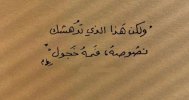 "ولكن هَذا الذي تُدهشك
نصُوصهُ، فَمهُ خَجُول"